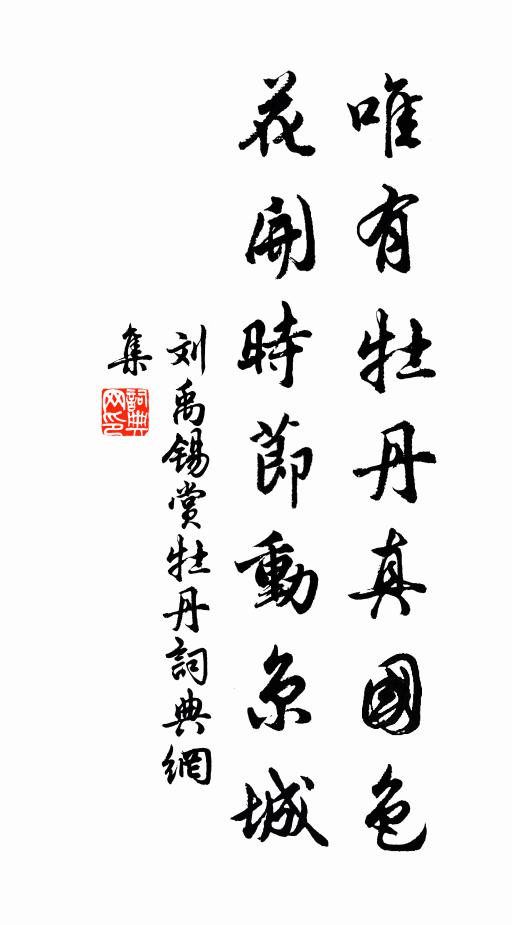 唯有牡丹真國色
花開時節動京城
刘禹锡赏牡丹詞典網
集
詞典
网印